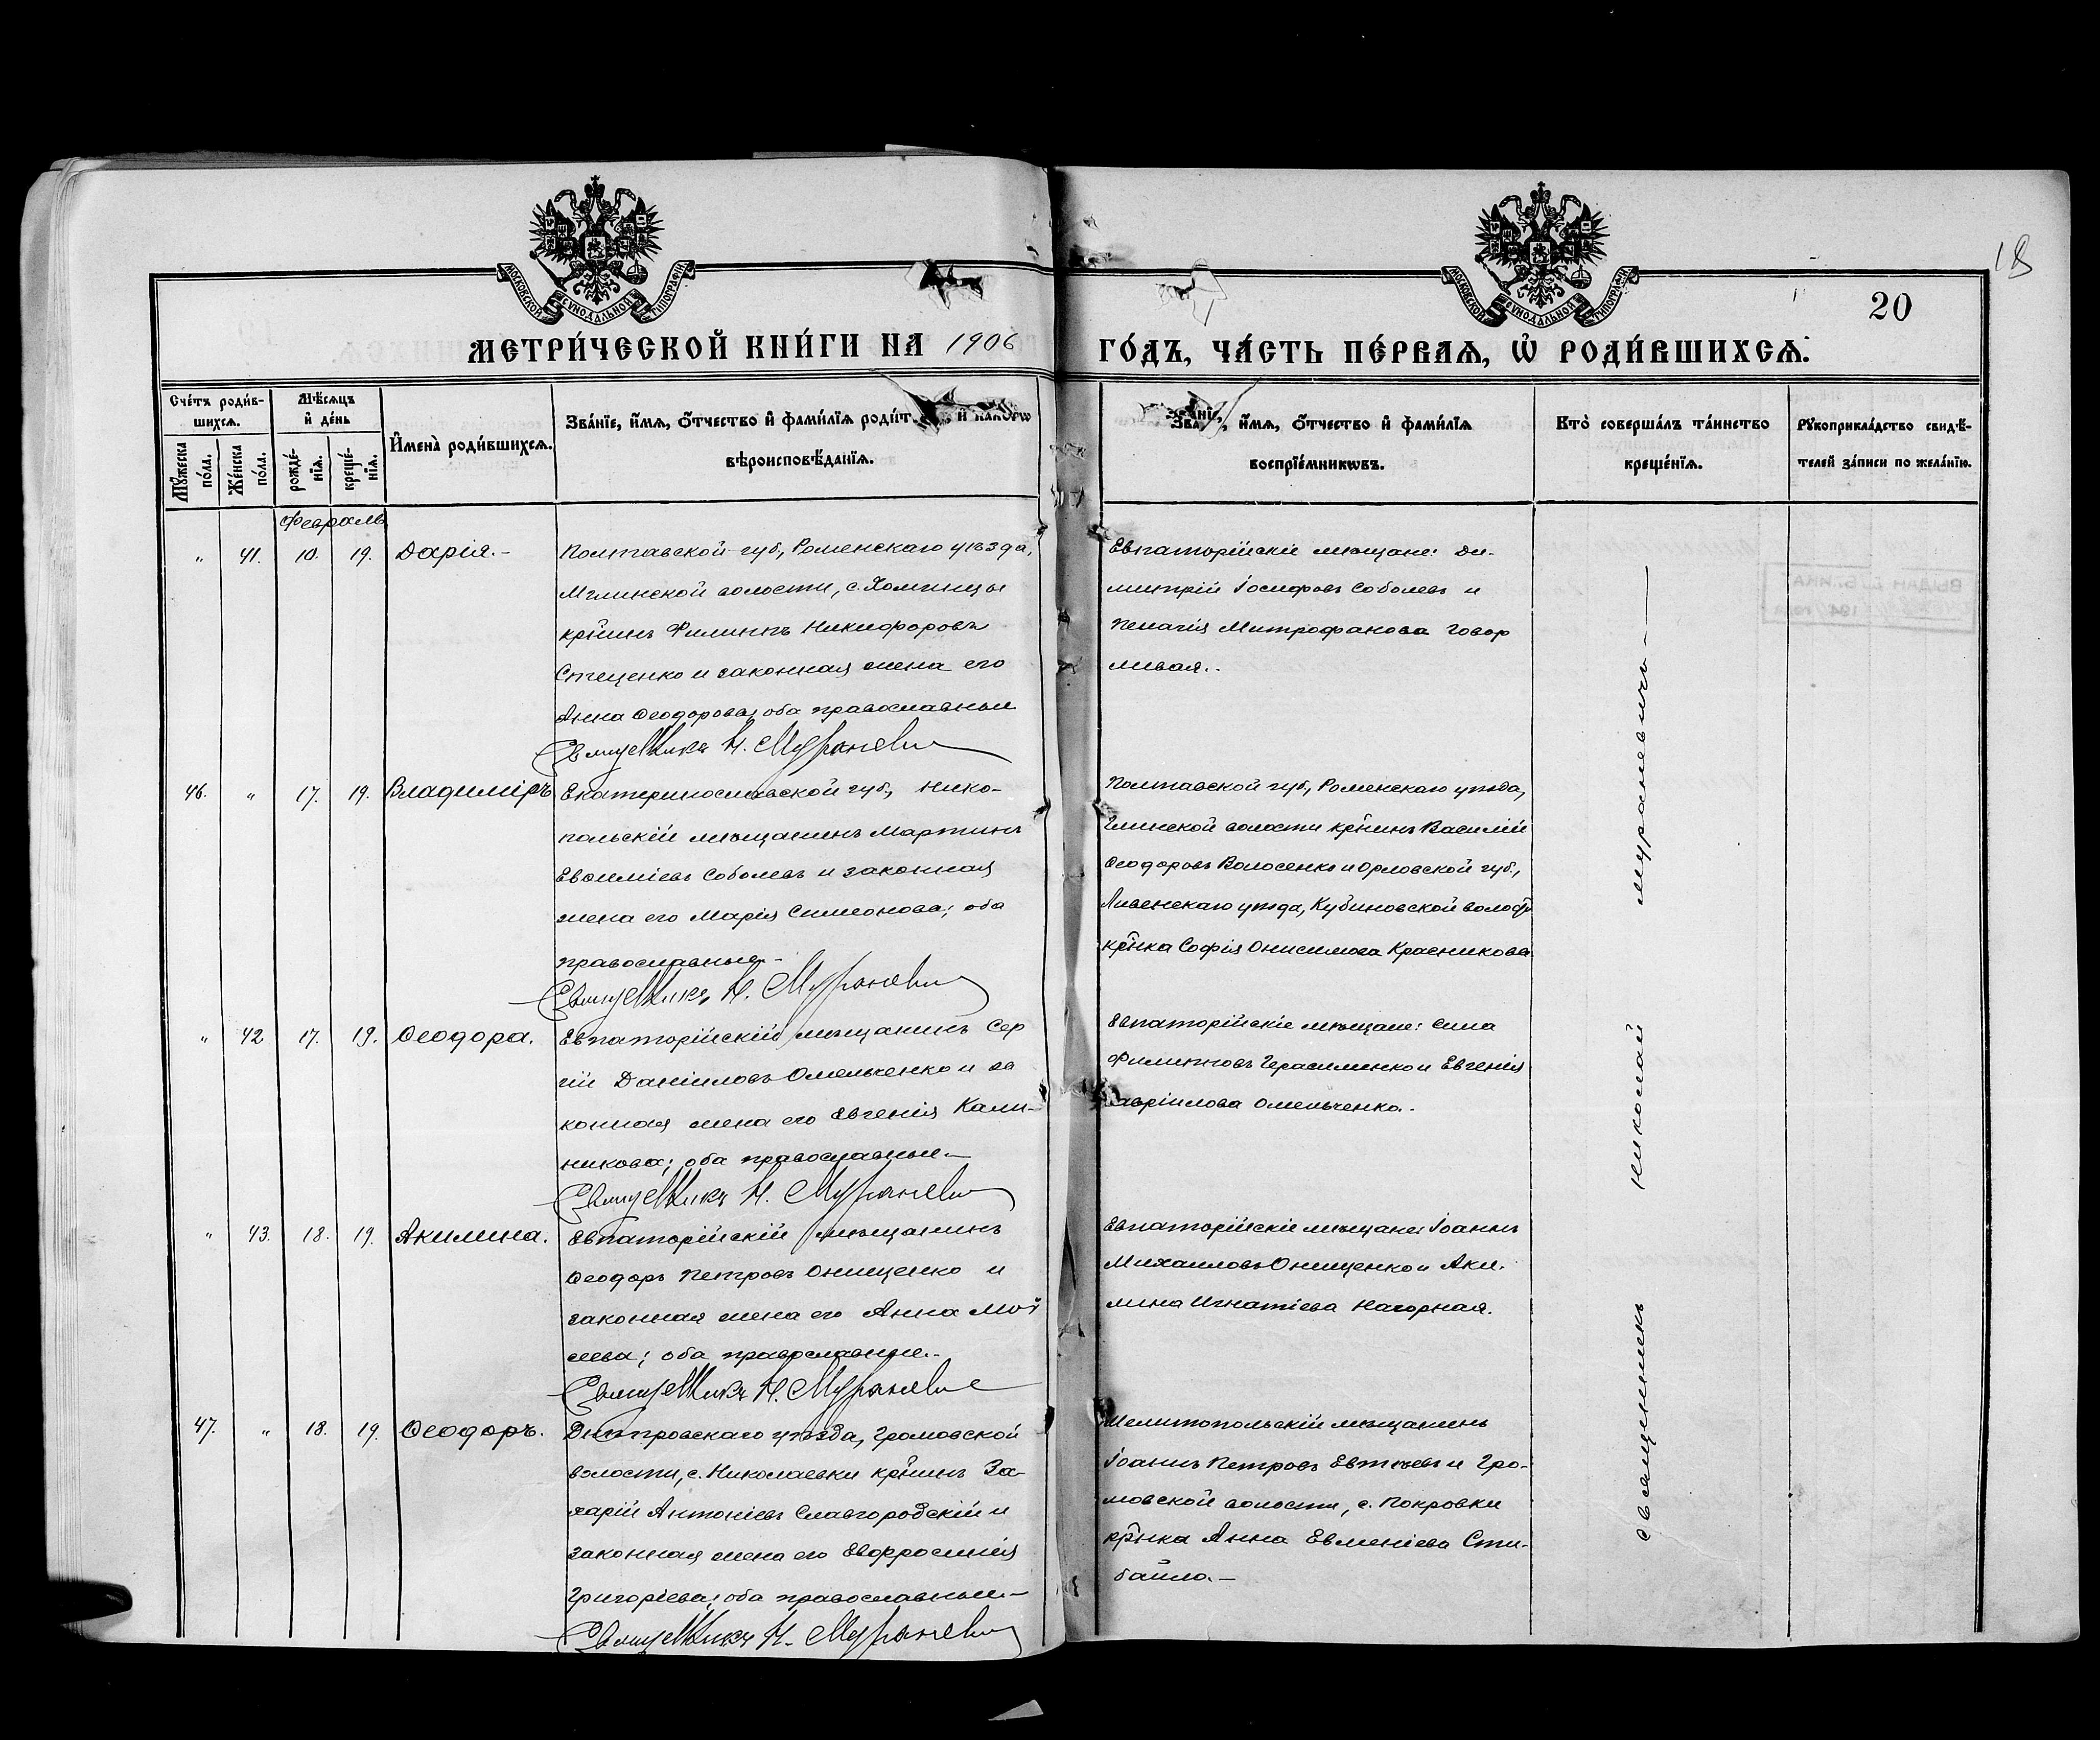 МОСКОВСКОЙ СѴНОДАЛЬНОЙ ТИПОГРАФІИ
МОСКОВСКОЙ СѴНОДАЛЬНОЙ ТИПОГРАФІИ
18
20
МЕТРИ́ЧЕСКОЙ КНИ́ГИ НА 1906
ГО́ДЪ, ЧА́СТЬ ПЕ́РВАѦ, Ѽ РОДИ́ВШИХСѦ.
Сче́тъ роди́в-
шихсѧ.
Мѣ́сѧцъ
и҆ де́нь
Мꙋ́жеска по́ла.
Же́нска по́ла.
рожде́-нїѧ.
креще́-нїѧ.
И҆мена̀ роди́вшихсѧ.
Зва́нїе, и҆́мѧ, ѻ҆́тчество и҆ фами́лїѧ роди́т
и҆ како́гѡ
вѣроисповѣ́данїѧ.
Зва́нїе, и҆́мѧ, ѻ҆́тчество и҆ фами́лїѧ
воспрїе́мникѡвъ.
Кто̀ соверша́лъ та́инство
креще́нїѧ.
Рꙋкоприкла́дство свидѣ́-
телей за́писи по жела́нїю.
Февраль
" 41. 10. 19. Дарія.-
Полтавской губ., Роменскаго уѣзда,
волости, с.
кр̃нинъ Филиппъ Никифоровъ
Стеценко и законная жена его
Анна Ѳеодорова; оба православные
Свящ Н. Мураневич
Евпаторійскіе мѣщане: Ди-
митрій Іосифовъ Соболевъ и
Пелагія Митрофанова Говор
ливая..
46. " 17. 19. Владиміръ
Екатеринославской губ., Нико-
польскій мѣщанинъ Мартинъ
Евѳиміевъ Соболевъ и законная
жена его Марія Симеонова; оба
православные-
Свящ Н. Мураневич
Полтавской губ., Роменскаго уѣзда,
Глинской волости кр̃нинъ Василій
Ѳеодоровъ Волосенко и Орловской губ.,
Ливенскаго уѣзда, Кубиновской волости
кр̃нка Софія Онисимова Красникова
" 42 17. 19. Ѳеодора.
Евпаторійскій мѣщанинъ Сер
гій Даніиловъ Омельченко и за
конная жена его Евгенія Кали-
никова; оба православные.-
Свящ Н. Мураневич
Евпаторійскіе мѣщане: Сила
Филипповъ Герасименко и Евгенія
Гавріилова Омельченко.
" 43. 18. 19. Акилина.
Евпаторійскій мѣщанинъ
Ѳеодоръ Петровъ Онищенко и
законная жена его Анна Мои
сеева; оба православные.-
Свящ Н. Мураневич
Евпаторійскіе мѣщане: Іоаннъ
Михаиловъ Онищенко и Аки-
лина Игнатіева Нагорная.
47. " 18. 19. Ѳеодоръ.
Днѣпровскаго уѣзда, Громовской
волости, с. Николаевки кр̃нинъ За-
харій Антоніевъ Славгородскій и
законная жена его Евфросинія
Григоріева; оба православные-
Свящ Н. Мураневич
Мелитопольскій мѣщанинъ
Іоаннъ Петровъ Евтѣевъ и Гро-
мовской волости, с. Покровки
кр̃нка Анна Евменіева Сти-
байло.-
священникъ Николай Мураневичъ-